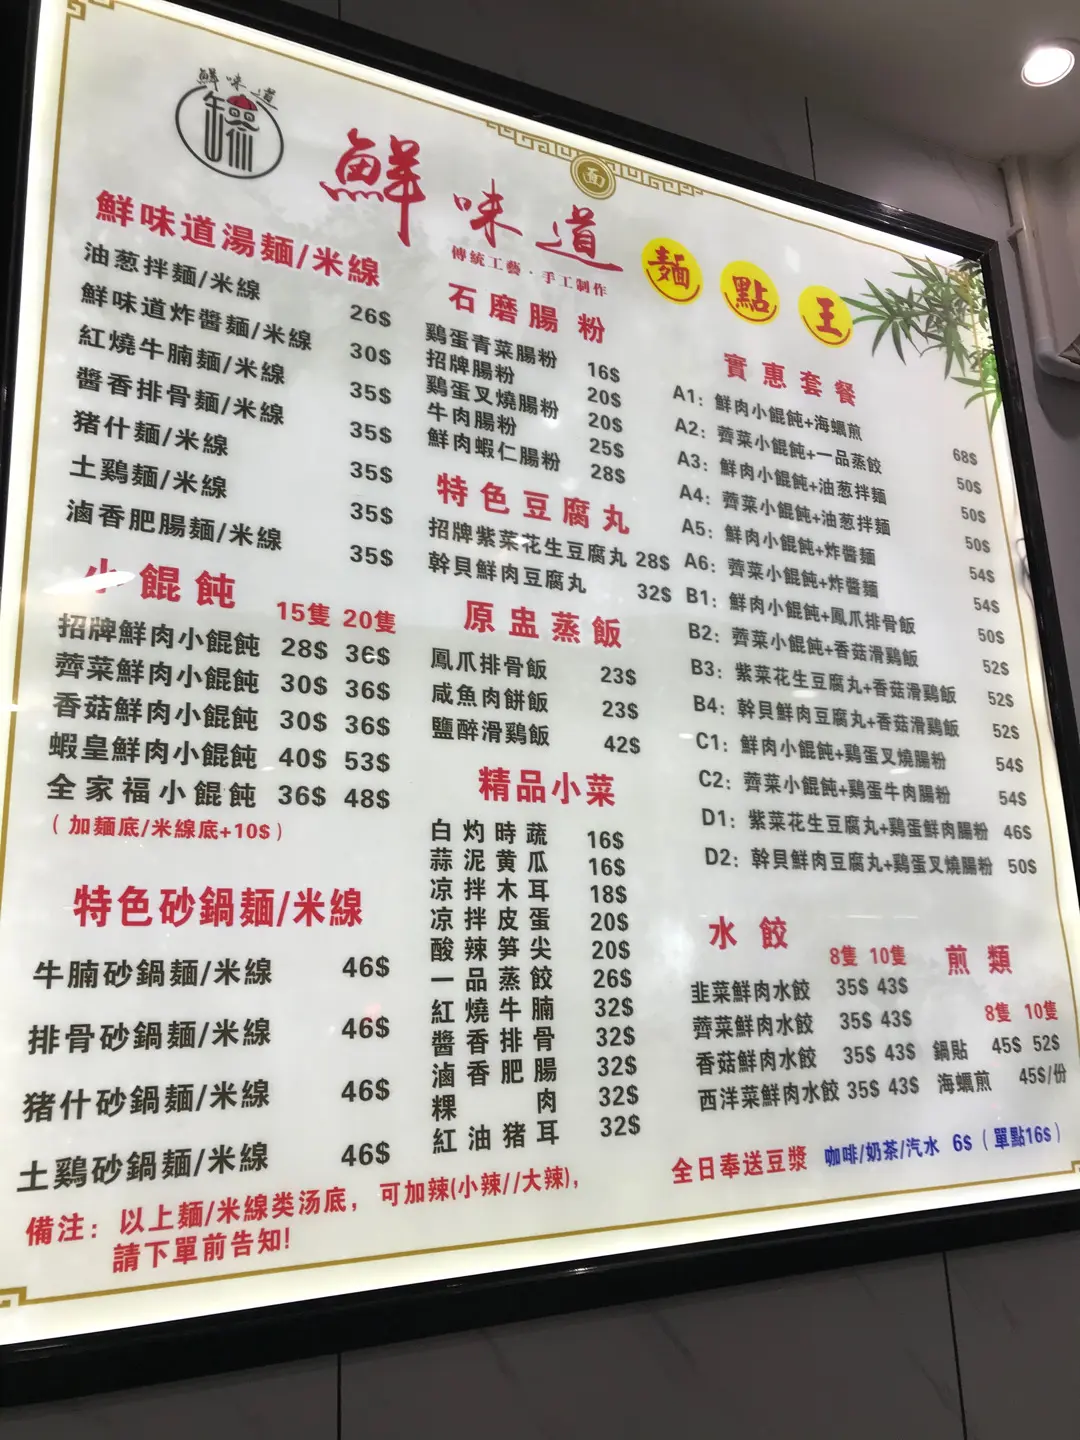 鮮味道
鮮味道
傳統工藝·手工制作
面
麵點王
鮮味道湯麵/米線
油葱拌麵/米線 26$
鮮味道炸醬麵/米線 30$
紅燒牛腩麵/米線 35$
醬香排骨麵/米線 35$
猪什麵/米線 35$
土鷄麵/米線 35$
滷香肥腸麵/米線 35$
小餛飩 15隻 20隻
招牌鮮肉小餛飩 28$ 36$
薺菜鮮肉小餛飩 30$ 36$
香菇鮮肉小餛飩 30$ 36$
蝦皇鮮肉小餛飩 40$ 53$
全家福小餛飩 36$ 48$
(加麵底/米線底+10$)
特色砂鍋麵/米線
牛腩砂鍋麵/米線 46$
排骨砂鍋麵/米線 46$
猪什砂鍋麵/米線 46$
土鷄砂鍋麵/米線 46$
石磨腸粉
鷄蛋青菜腸粉 16$
招牌腸粉 20$
鷄蛋叉燒腸粉 20$
牛肉腸粉 25$
鮮肉蝦仁腸粉 28$
特色豆腐丸
招牌紫菜花生豆腐丸 28$
幹貝鮮肉豆腐丸 32$
原盅蒸飯
鳳爪排骨飯 23$
咸魚肉餅飯 23$
鹽醉滑鷄飯 42$
精品小菜
白灼時蔬 16$
蒜泥黄瓜 16$
凉拌木耳 18$
凉拌皮蛋 20$
酸辣笋尖 20$
一品蒸餃 26$
紅燒牛腩 32$
醬香排骨 32$
滷香肥腸 32$
粿肉 32$
紅油猪耳 32$
實惠套餐
A1: 鮮肉小餛飩+海蠣煎 68$
A2: 薺菜小餛飩+一品蒸餃 50$
A3: 鮮肉小餛飩+油葱拌麵 50$
A4: 薺菜小餛飩+油葱拌麵 50$
A5: 鮮肉小餛飩+炸醬麵 54$
A6: 薺菜小餛飩+炸醬麵 54$
B1: 鮮肉小餛飩+鳳爪排骨飯 50$
B2: 薺菜小餛飩+香菇滑鷄飯 52$
B3: 紫菜花生豆腐丸+香菇滑鷄飯 52$
B4: 幹貝鮮肉豆腐丸+香菇滑鷄飯 52$
C1: 鮮肉小餛飩+鷄蛋叉燒腸粉 54$
C2: 薺菜小餛飩+鷄蛋牛肉腸粉 54$
D1: 紫菜花生豆腐丸+鷄蛋鮮肉腸粉 46$
D2: 幹貝鮮肉豆腐丸+鷄蛋叉燒腸粉 50$
水餃 8隻 10隻
韭菜鮮肉水餃 35$ 43$
薺菜鮮肉水餃 35$ 43$
香菇鮮肉水餃 35$ 43$
西洋菜鮮肉水餃 35$ 43$
煎類
8隻 10隻
鍋貼 45$ 52$
海蠣煎 45$/份
全日奉送豆漿 咖啡/奶茶/汽水 6$ (單點16$)
備注: 以上麵/米線类汤底, 可加辣(小辣//大辣),
請下單前告知!